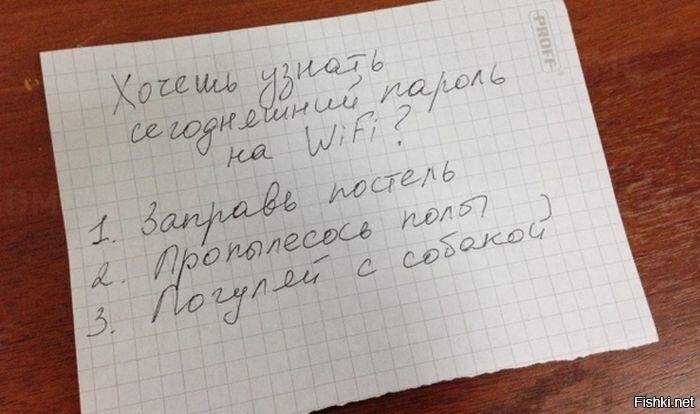 Хочешь узнать
сегодняшний пароль
на WiFi?
1. Заправь постель
2. Пропылесось полы
3. Погуляй с собакой
PROFF
Fishki.net